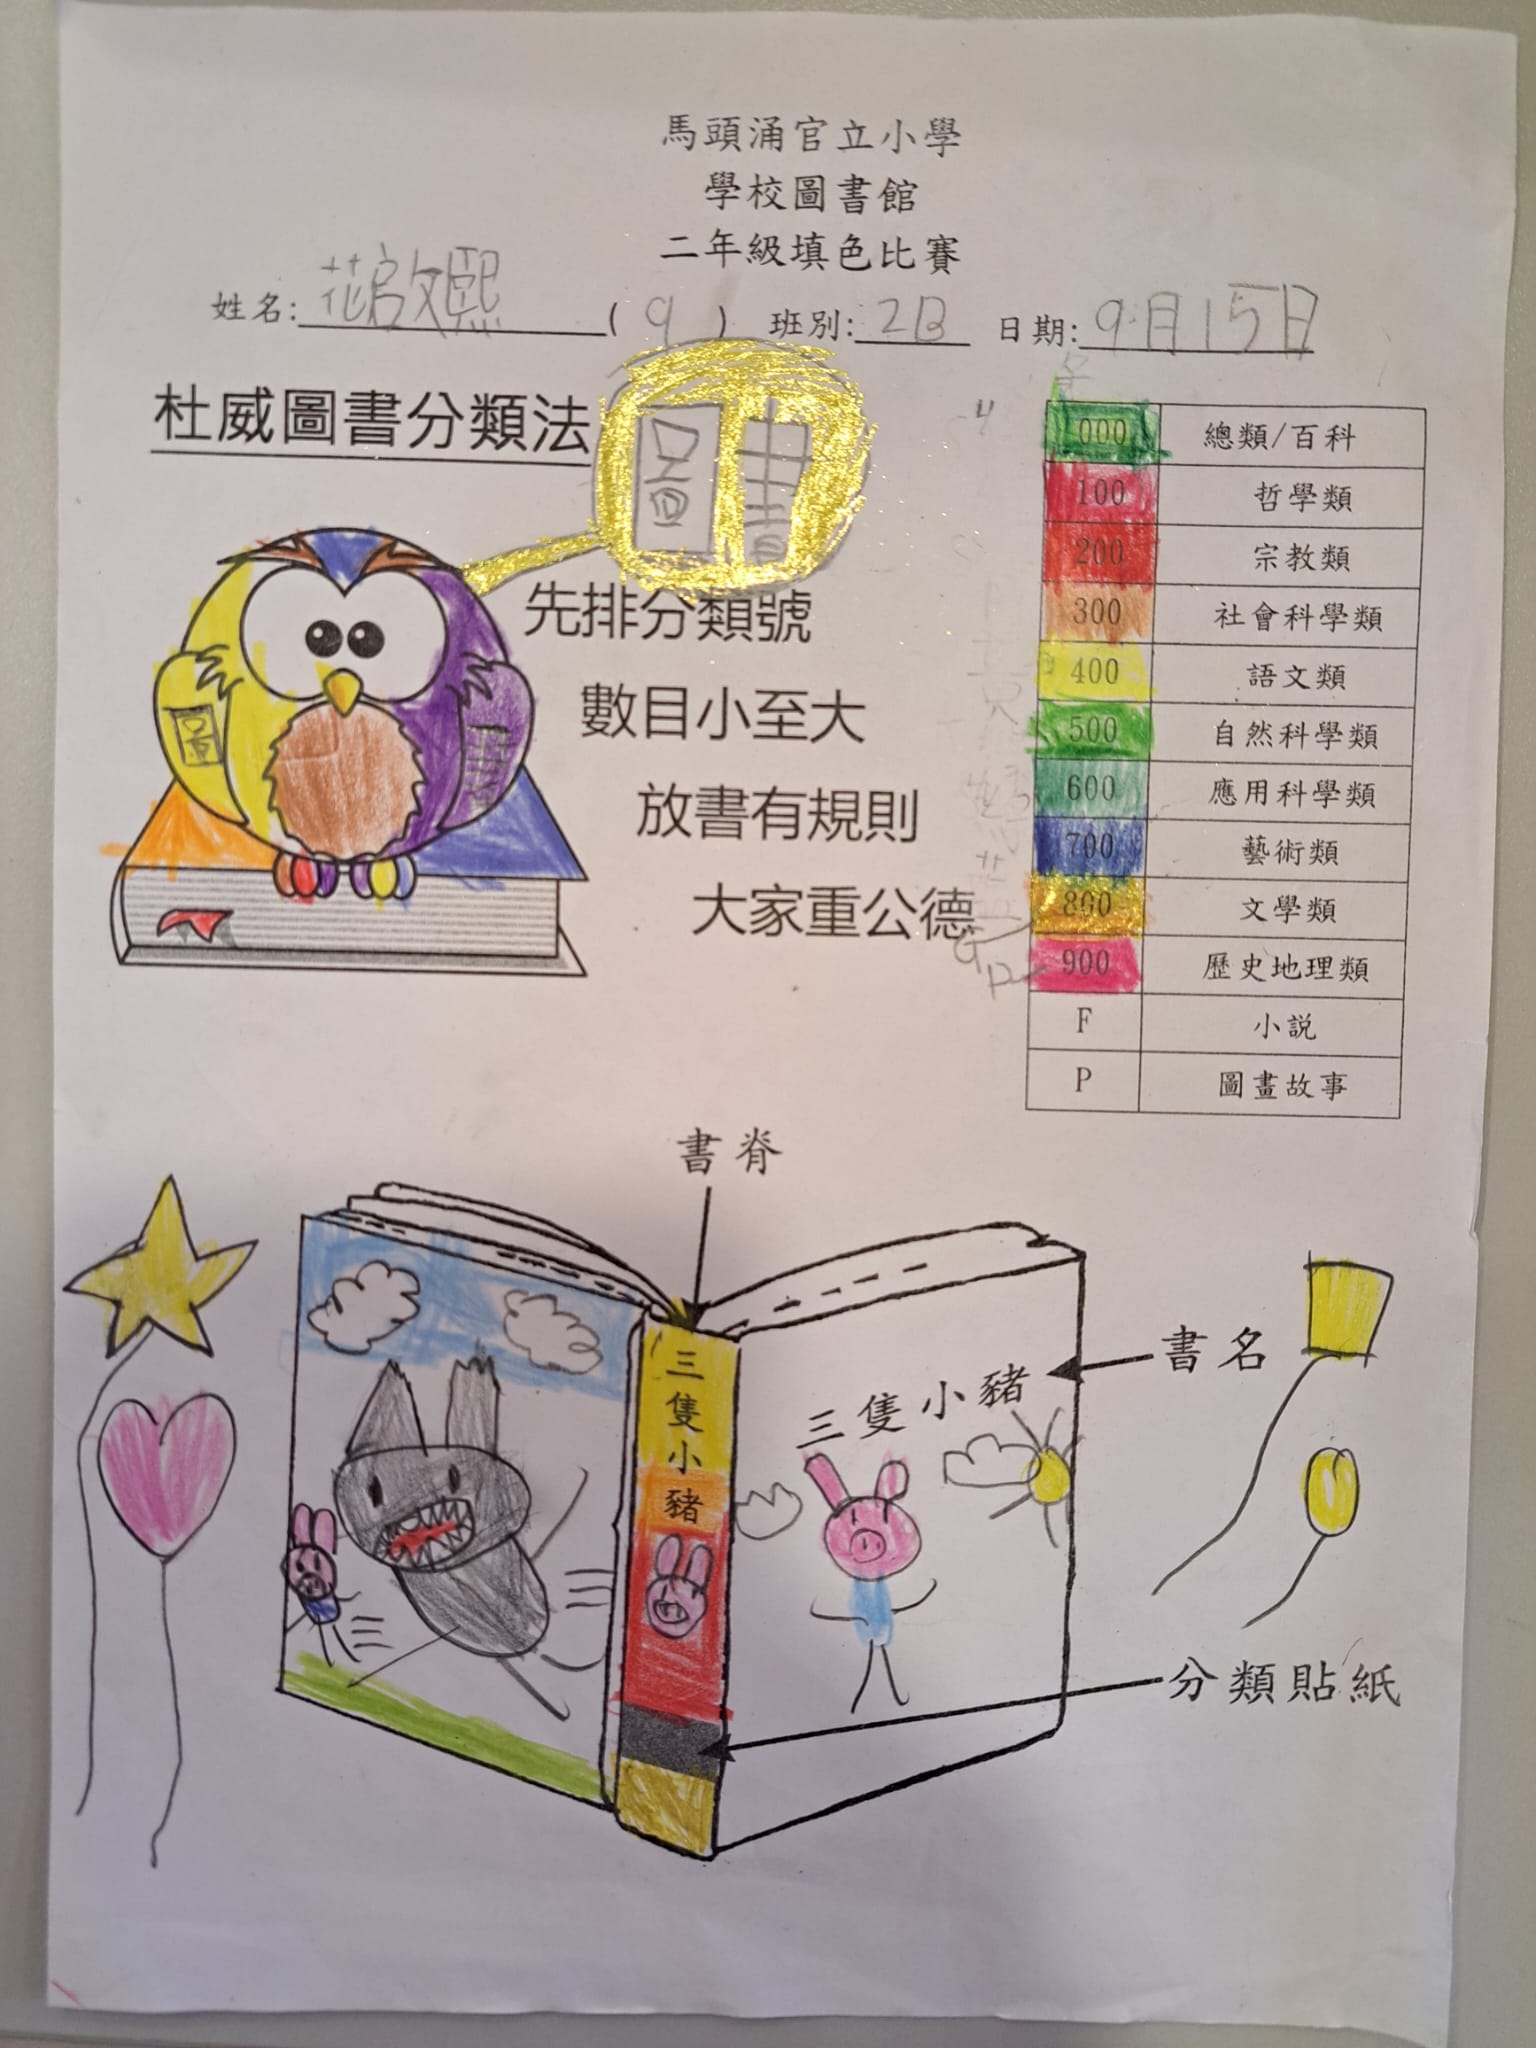 馬頭涌官立小學
學校圖書館
二年級填色比賽
姓名: 花啟熙 ( 9 ) 班別: 2B 日期: 9月15日
杜威圖書分類法
圖書
先排分類號
數目小至大
放書有規則
大家重公德
圖 書
000 總類/百科
100 哲學類
200 宗教類
300 社會科學類
400 語文類
500 自然科學類
600 應用科學類
700 藝術類
800 文學類
900 歷史地理類
F 小説
P 圖畫故事
書脊
三隻小豬
三隻小豬
書名
分類貼紙